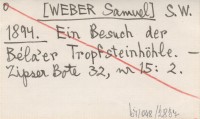 [WEBER Samuel] S.W.
1894. Ein Besuch der
Béla'er Tropfsteinhöhle. —
Zipser Bote 32, nr 15: 2.